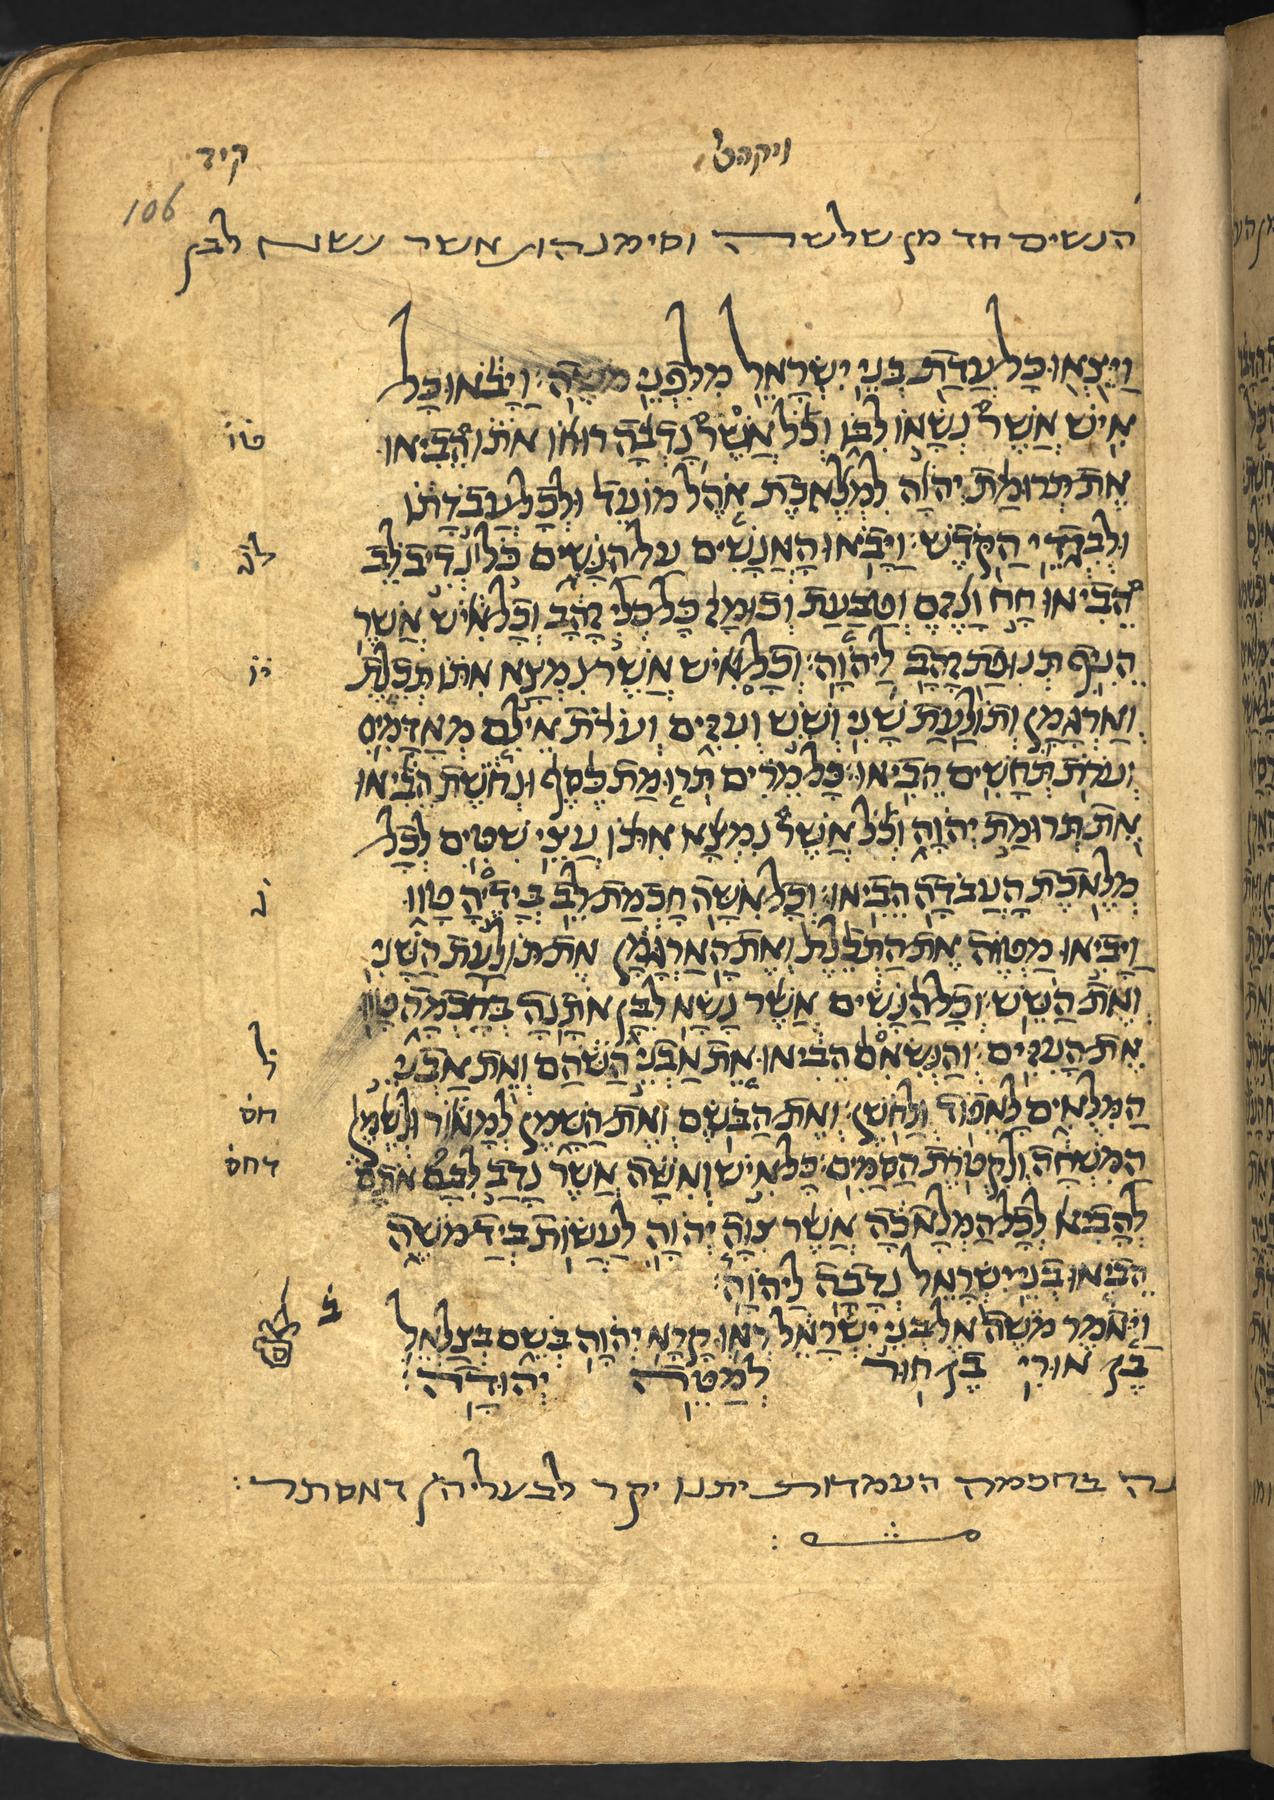 ויקהל
קיד
106
הנשים חד מן שלשה וסימנהון אשר נשא לבן
וַיֵּצְאוּ כָּל עֲדַת בְּנֵי יִשְׂרָאֵל מִלִּפְנֵי מֹשֶׁה׃ וַיָּבֹאוּ כָּל
אִישׁ אֲשֶׁר נְשָׂאוֹ לִבּוֹ וְכֹל אֲשֶׁר נָדְבָה רוּחוֹ אֹתוֹ הֵבִיאוּ
טו
אֶת תְּרוּמַת יְהוָה לִמְלֶאכֶת אֹהֶל מוֹעֵד וּלְכָל עֲבֹדָתוֹ
וּלְבִגְדֵי הַקֹּדֶשׁ׃ וַיָּבֹאוּ הָאֲנָשִׁים עַל הַנָּשִׁים כֹּל נְדִיב לֵב
הֵבִיאוּ חָח וָנֶזֶם וְטַבַּעַת וְכוּמָז כָּל כְּלִי זָהָב וְכָל אִישׁ אֲשֶׁר
הֵנִיף תְּנוּפַת זָהָב לַיהוָה׃ וְכָל אִישׁ אֲשֶׁר נִמְצָא אִתּוֹ תְּכֵלֶת
יו
וְאַרְגָּמָן וְתוֹלַעַת שָׁנִי וְשֵׁשׁ וְעִזִּים וְעֹרֹת אֵילִם מְאָדָּמִים
וְעֹרֹת תְּחָשִׁים הֵבִיאוּ׃ כָּל מֵרִים תְּרוּמַת כֶּסֶף וּנְחֹשֶׁת הֵבִיאוּ
אֵת תְּרוּמַת יְהוָה וְכֹל אֲשֶׁר נִמְצָא אִתּוֹ עֲצֵי שִׁטִּים לְכָל
מְלֶאכֶת הָעֲבֹדָה הֵבִיאוּ׃ וְכָל אִשָּׁה חַכְמַת לֵב בְּיָדֶיהָ טָווּ
וַיָּבִיאוּ מַטְוֶה אֶת הַתְּכֵלֶת וְאֶת הָאַרְגָּמָן אֶת תּוֹלַעַת הַשָּׁנִי
וְאֶת הַשֵּׁשׁ׃ וְכָל הַנָּשִׁים אֲשֶׁר נָשָׂא לִבָּן אֹתָנָה בְּחָכְמָה טָווּ
אֶת הָעִזִּים׃ וְהַנְּשִׂאִם הֵבִיאוּ אֵת אַבְנֵי הַשֹּׁהַם וְאֵת אַבְנֵי
ל
הַמִּלֻּאִים לָאֵפוֹד וְלַחֹשֶׁן׃ וְאֶת הַבֹּשֶׂם וְאֶת הַשָּׁמֶן לְמָאוֹר וּלְשֶׁמֶן
חס
הַמִּשְׁחָה וְלִקְטֹרֶת הַסַּמִּים׃ כָּל אִישׁ וְאִשָּׁה אֲשֶׁר נָדַב לִבָּם אֹתָם
דחס
לְהָבִיא לְכָל הַמְּלָאכָה אֲשֶׁר צִוָּה יְהוָה לַעֲשׂוֹת בְּיַד מֹשֶׁה
הֵבִיאוּ בְנֵי יִשְׂרָאֵל נְדָבָה לַיהוָה׃
וַיֹּאמֶר מֹשֶׁה אֶל בְּנֵי יִשְׂרָאֵל רְאוּ קָרָא יְהוָה בְּשֵׁם בְּצַלְאֵל
ב
בֶּן אוּרִי בֶן חוּר לְמַטֵּה יְהוּדָה׃
נה בחכמה העמדות יתנו יקר לבעליהן דאסתר׃